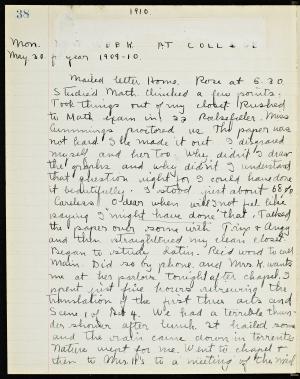 38
1910.
Mon. WORK AT COLLEGE
May 30. of year 1909-10.
Mailed letter Home. Rose at 6.30
Studied Math. Clinched a few points.
Took things out of my closet. Rushed
to Math exam in 23 Miss
Cummings proctored us. The paper was
not hard. I made it out. I disgraced
myself and her too. Why didn't I draw
the graphs and why didn't I understand
that question right for I could have done
it beautifully. I stood just about 68%
Careless. O dear when will I not feel like
saying "I might have done that". Talked
the paper over some with Trip & Angy
and then straightened my clean closet.
Began to study Latin. Rec'd word to call
Main. Did so by phone, and Mrs. K. wants
me at her parlors tonight after chapel. I
spent just five hours reviewing the
translation of the first three acts and
Scene 1 of Act 4. We had a terrible thun-
der shower after lunch. It hailed some
and the rain came down in torrents
Nature wept for me. Went to chapel &
then to Mrs. K's to a meeting of the